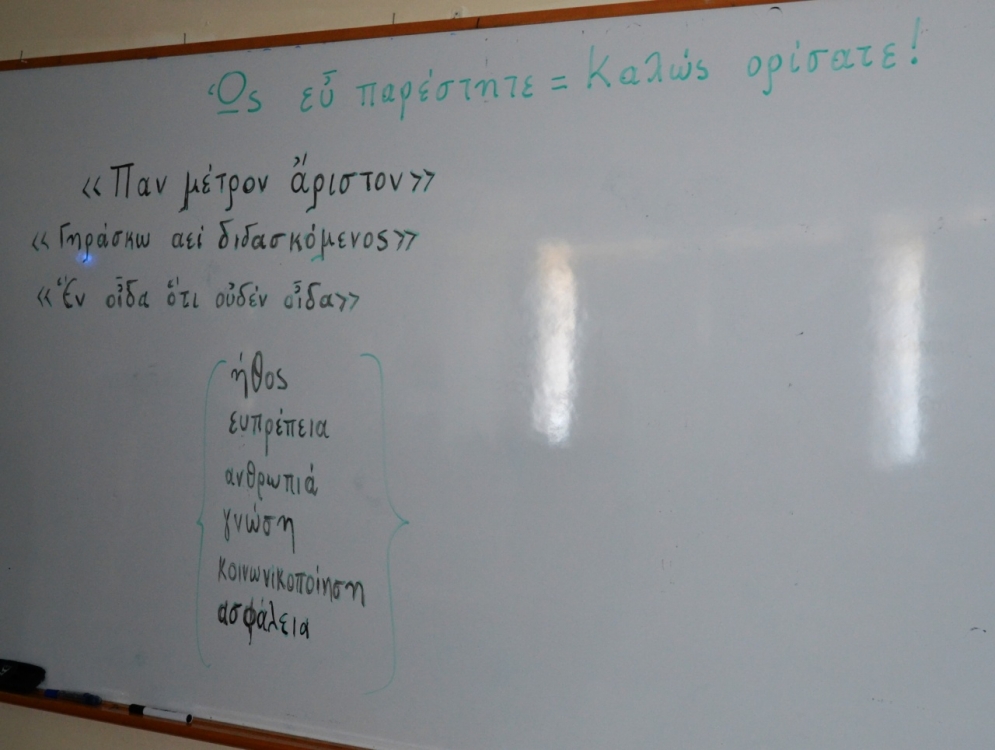 Ὡς εὖ παρέστητε = Καλώς ορίσατε!
«Παν μέτρον ἄριστον»
«Γηράσκω αεί διδασκόμενος»
«Ἕν οἶδα ὅτι οὐδέν οἶδα»
ήθος
ευπρέπεια
ανθρωπιά
γνώση
κοινωνικοποίηση
ασφάλεια